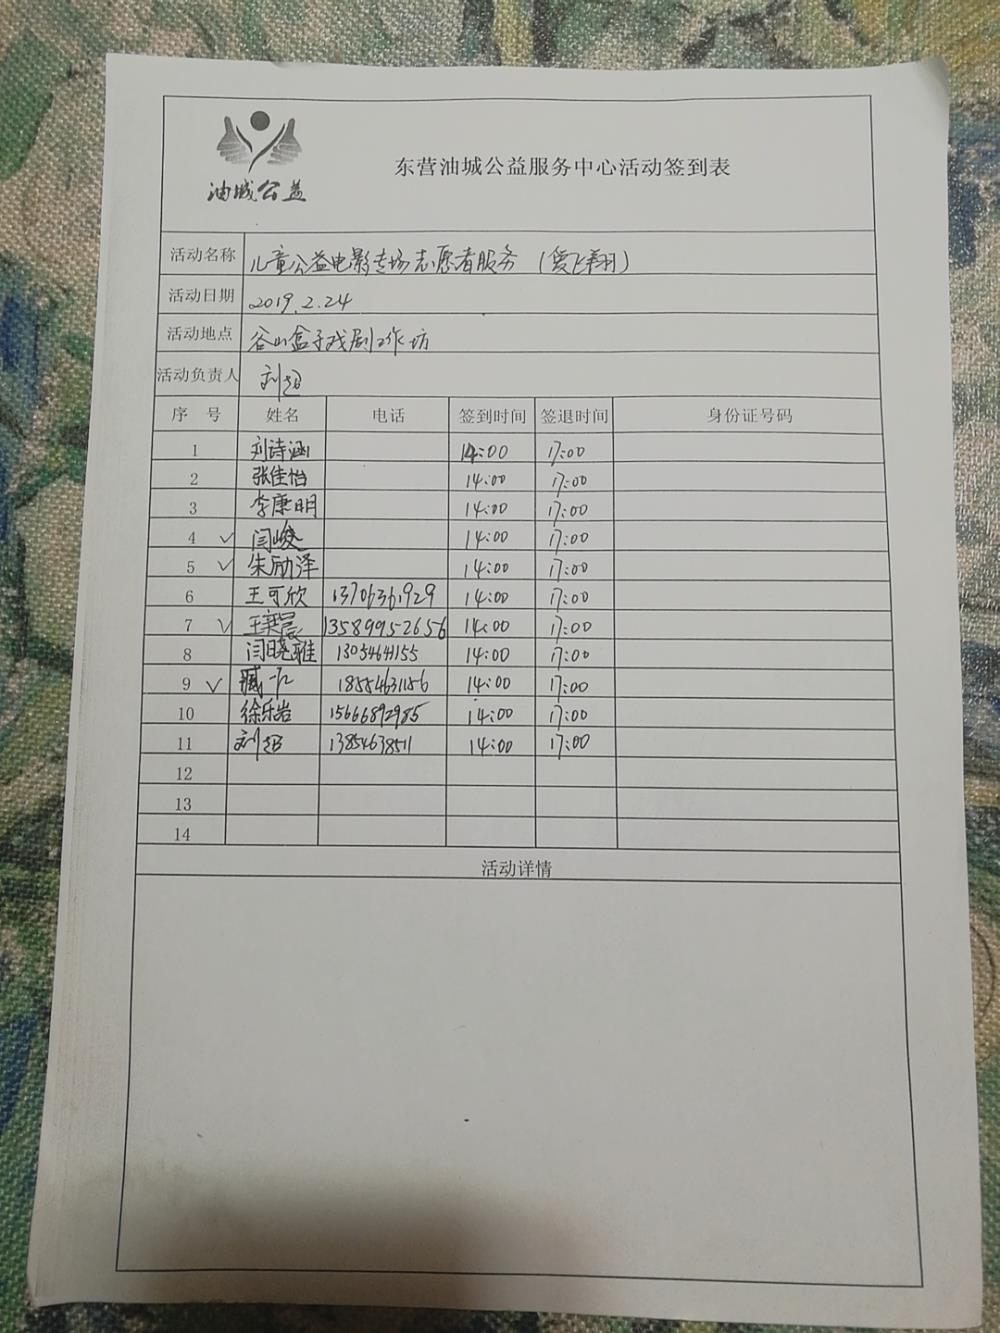 油城公益
东营油城公益服务中心活动签到表
活动名称 儿童公益电影专场志愿者服务 (爱飞翔)
活动日期 2019.2.24
活动地点 谷山盒子戏剧工作坊
活动负责人 刘超
序 号 姓名 电话 签到时间 签退时间 身份证号码
1 刘诗涵 14:00 17:00
2 张佳怡 14:00 17:00
3 李康明 14:00 17:00
4 ✓ 闫峻 14:00 17:00
5 ✓ 朱励泽 14:00 17:00
6 王可欣 13706361929 14:00 17:00
7 ✓ 王 晨 13589952656 14:00 17:00
8 闫晓雅 13054641155 14:00 17:00
9 ✓ 臧 18554631156 14:00 17:00
10 徐乐岩 15666892985 14:00 17:00
11 刘超 13854638511 14:00 17:00
12
13
14
活动详情